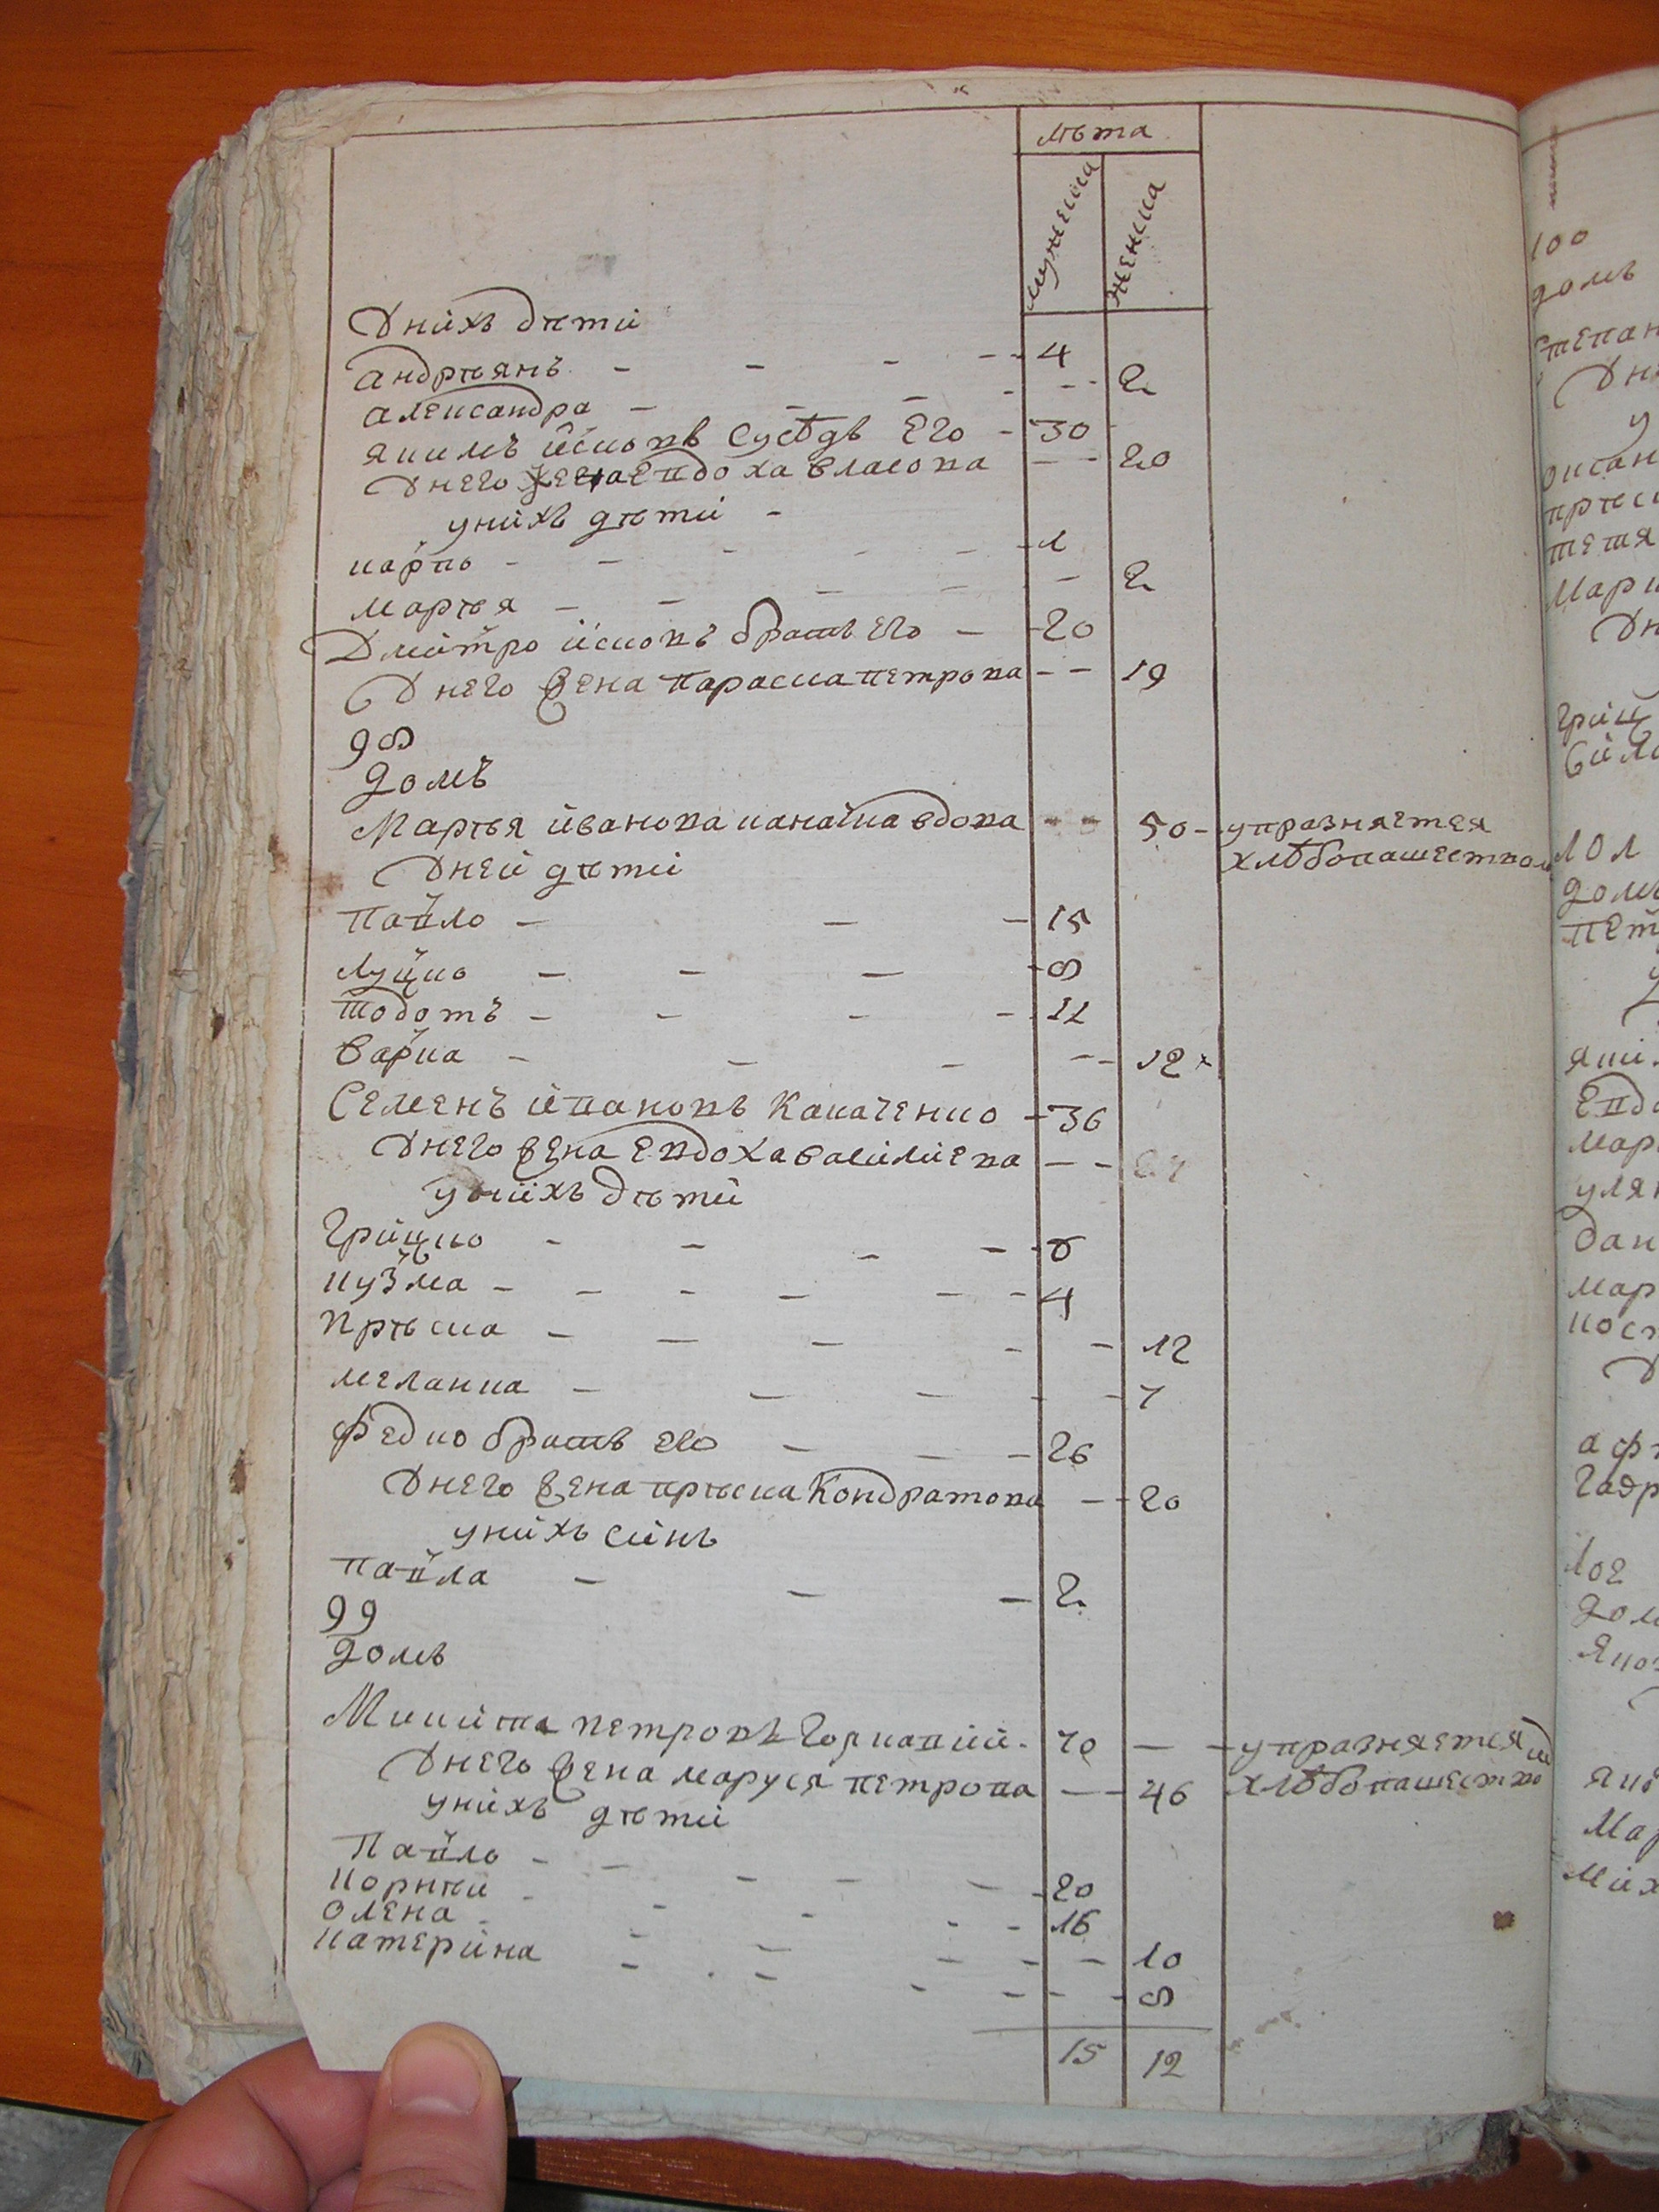 лѣта
мужеска
женска
Унихъ дѣти
андрѣянъ - - - - 4
александра - - - - - - 2
якимъ исковъ сусѣдъ его - 30
Унего жена Евдоха власова - - 20
унихъ дѣти -
карпъ - - - - - 1
марѣя - - - - - 2
Дмитро исковъ братъ его - 20
Унего жена параска петрова - - 19
98
домъ
Марѣя иванова канаїка вдова - - 50 - упразняется
хлѣбопашествомъ
Уней дѣти
павло - - - 15
луцкъ - - - - 8
тодотъ - - - - 11
варка - - - - - 12
Семенъ ивановъ Каначенко - 36
Унего жена Евдоха василиева - -
унихъ дѣти
грицко - - - - 6
кузма - - - - - - 4
прѣска - - - - - 12
меланка - - - - - 7
федко братъ его - - - 26
Унего жена прѣска Кондратова - 20
унихъ синъ
павла - - - 2
99
домъ
Микита петровъ Горкавий - 70 - - упразняется
хлѣбопашество
Унего жена маруся петрова - - 46
унихъ дѣти
Павло - - - - - 20
корнѣй - - - - - 16
олена - - - - - 10
катерина - - - - - 8
15 12
100
домъ
степан
Ун
у
оксан
прѣс
тетя
мари
Ун
гриц
101
домъ
пет
у
Евдо
мар
улян
дан
мар
кос
У
102
дом
Яко
Мар
Мих